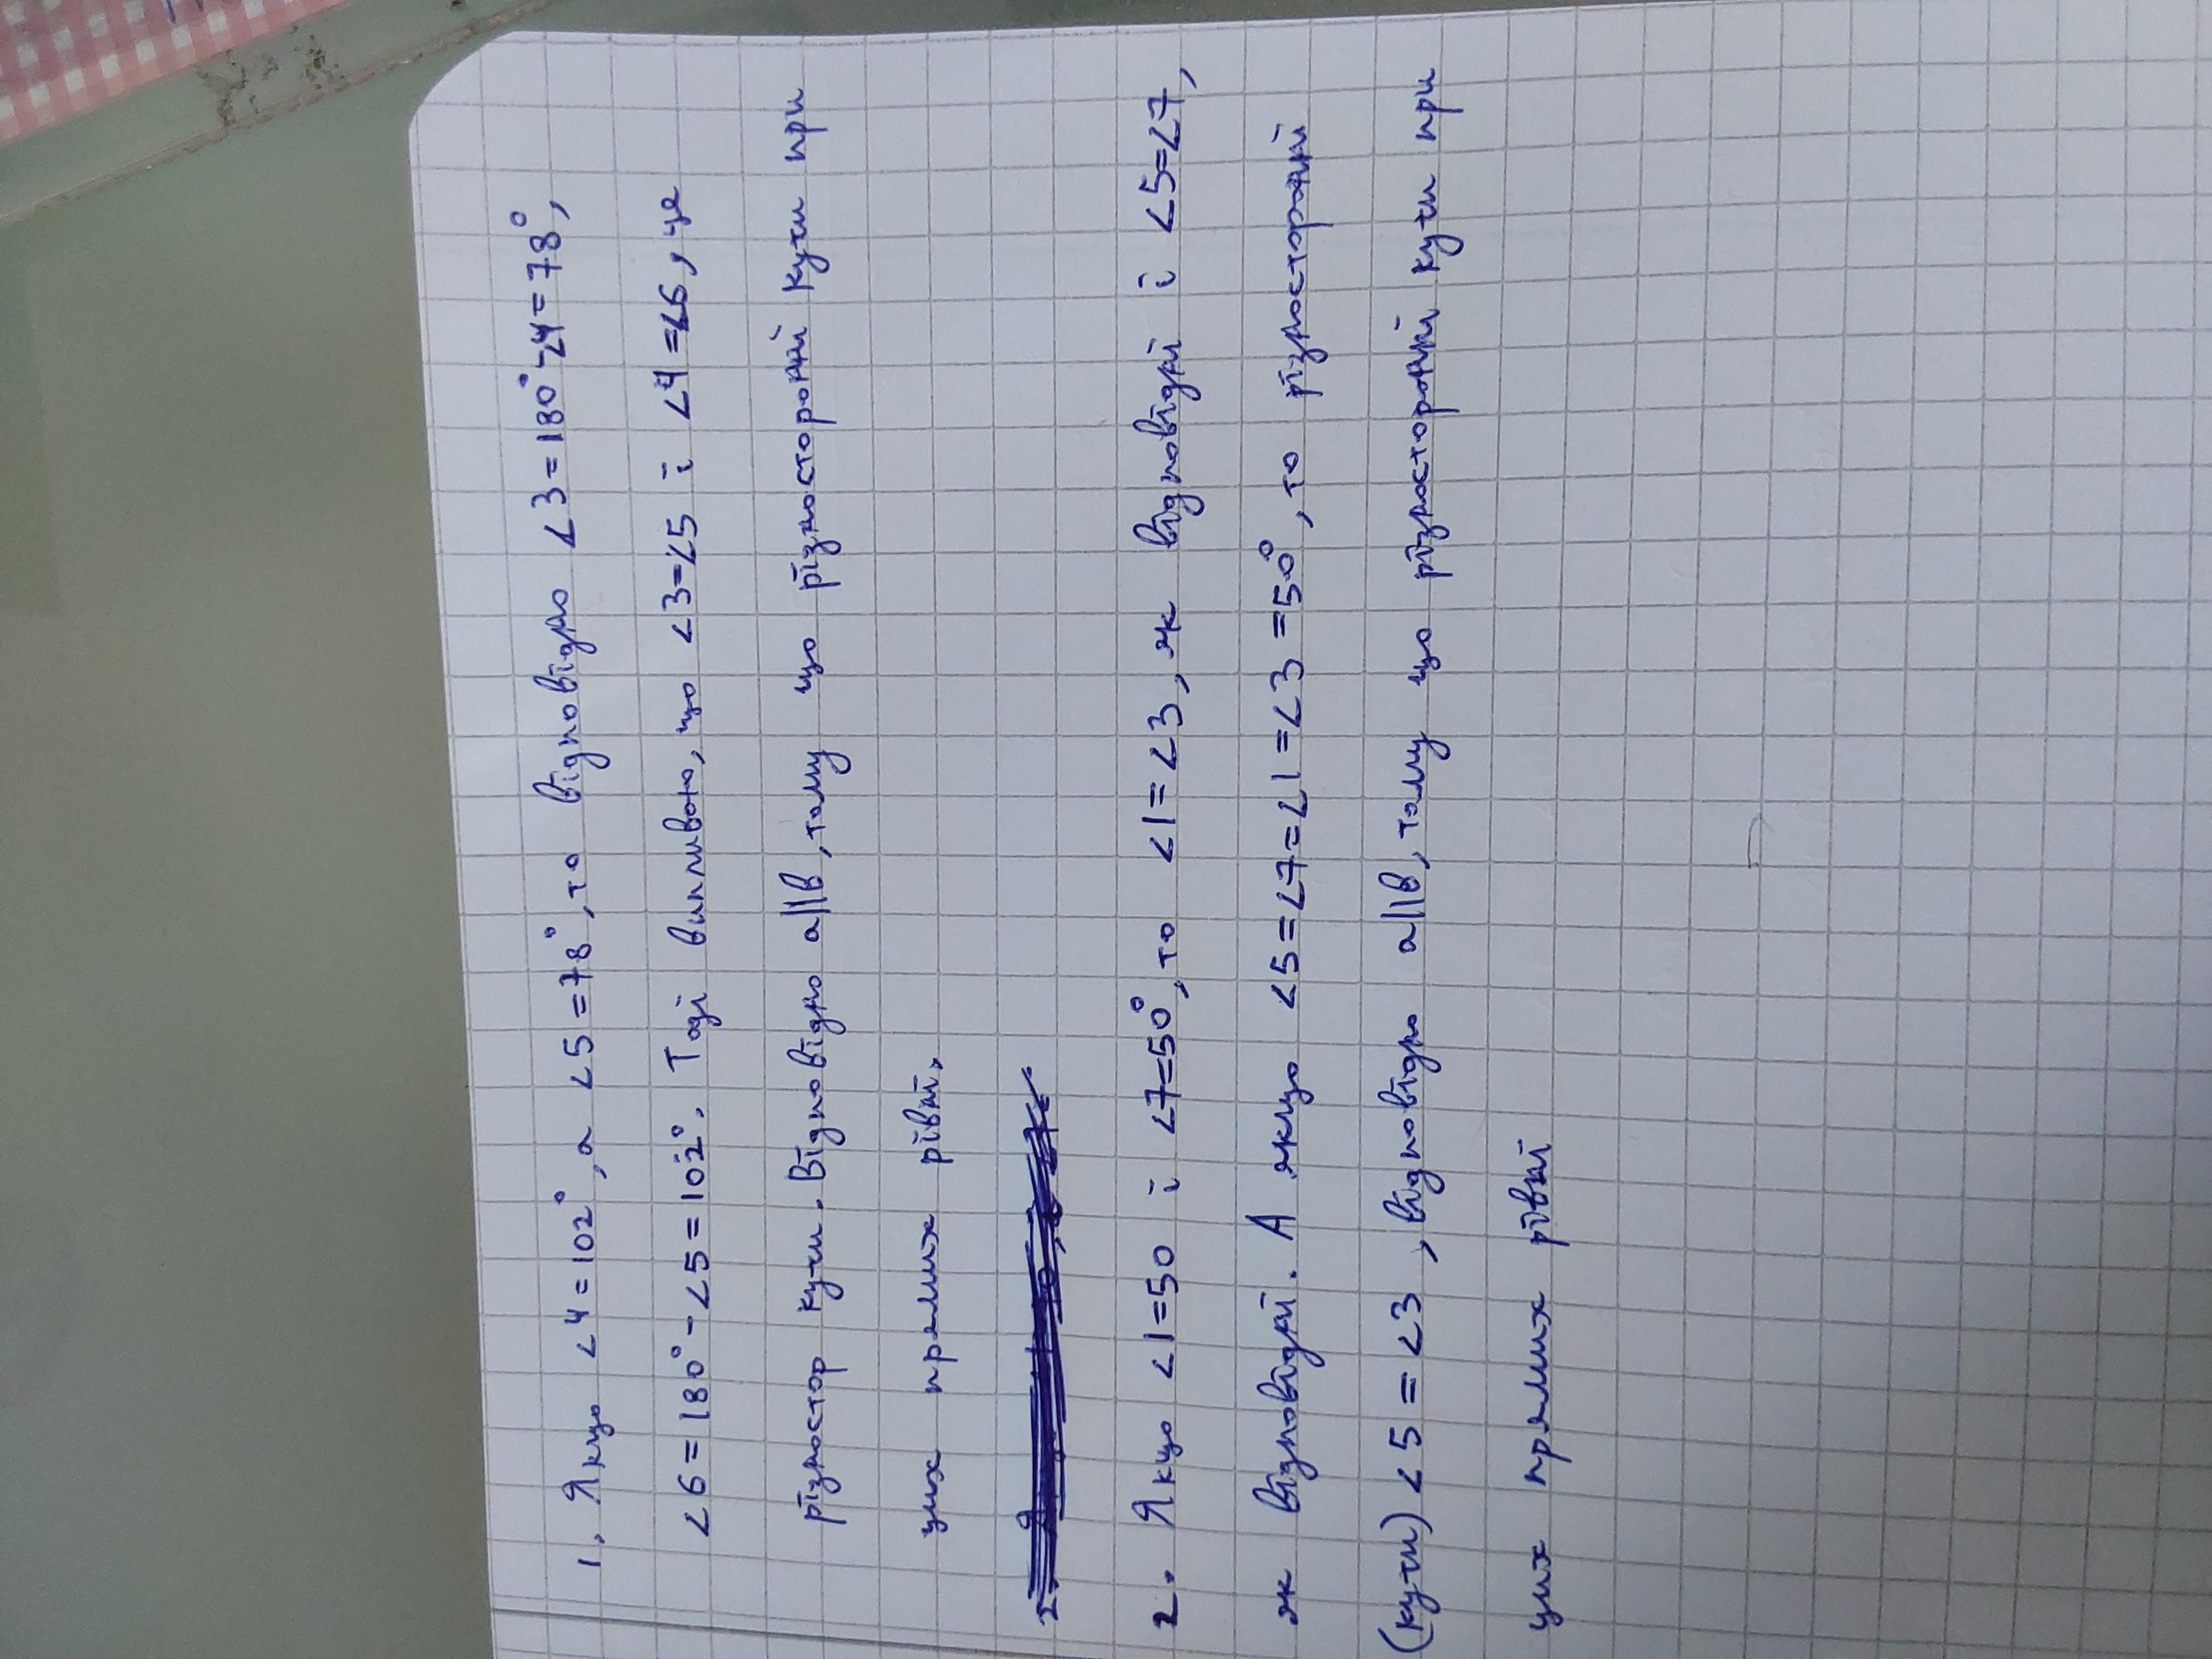 1. Якщо ∠4=102°, а ∠5=78°, то відповідно ∠3=180°-∠4=78°,
∠6=180°-∠5=102°. Тоді випливою, що ∠3=∠5 і ∠4=∠6, це
різностор кути. Відповідно a||b, тому що різносторонні кути при
цих прямих рівні.
2. Якщо ∠1=50 і ∠7=50°, то ∠1=∠3, як відповідні і ∠5=∠7,
як відповідні. А якщо ∠5=∠7=∠1=∠3=50°, то різносторонні
(кути) ∠5=∠3, відповідно a||b, тому що різносторонні кути при
цих прямих рівні